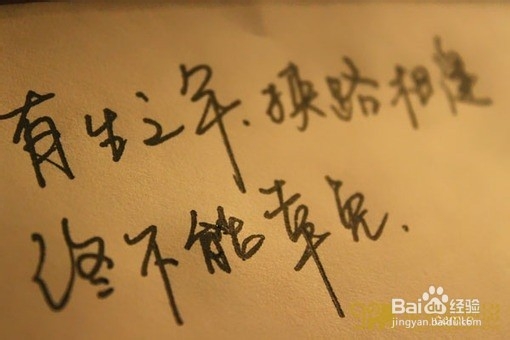 有生之年、狭路相逢
终不能幸免.
Baidu 经验
jingyan.baidu.com